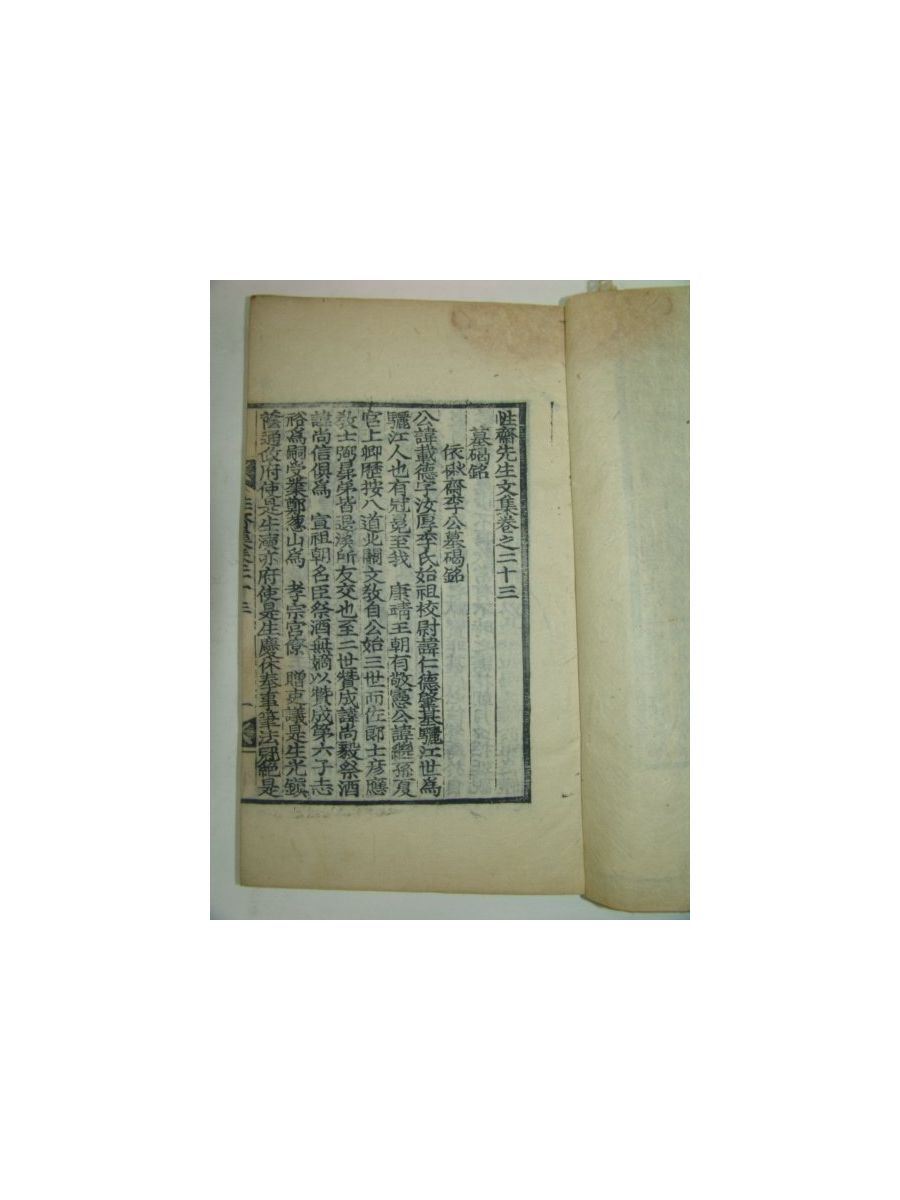 性齋先生文集卷之二十三
墓碣銘
依秋齋李公墓碣銘
公諱載德字汝厚李氏始祖校尉諱仁德肇基驪江世爲
驪江人也有冠冕至我 康靖王朝有敬憲公諱繼孫夏
官上卿歷按八道北關文敎自公始三世而佐郞士彦應
敎士弼昆弟皆退溪所友交也至二世贊成諱尚毅祭酒
諱尚信俱爲 宣祖朝名臣祭酒無嫡以贊成第六子志
裕爲嗣受業鄭蔥山爲 孝宗宮僚 贈吏議是生光鎭
蔭通政府使是生瀆亦府使是生慶休奉事筆法冠絶是